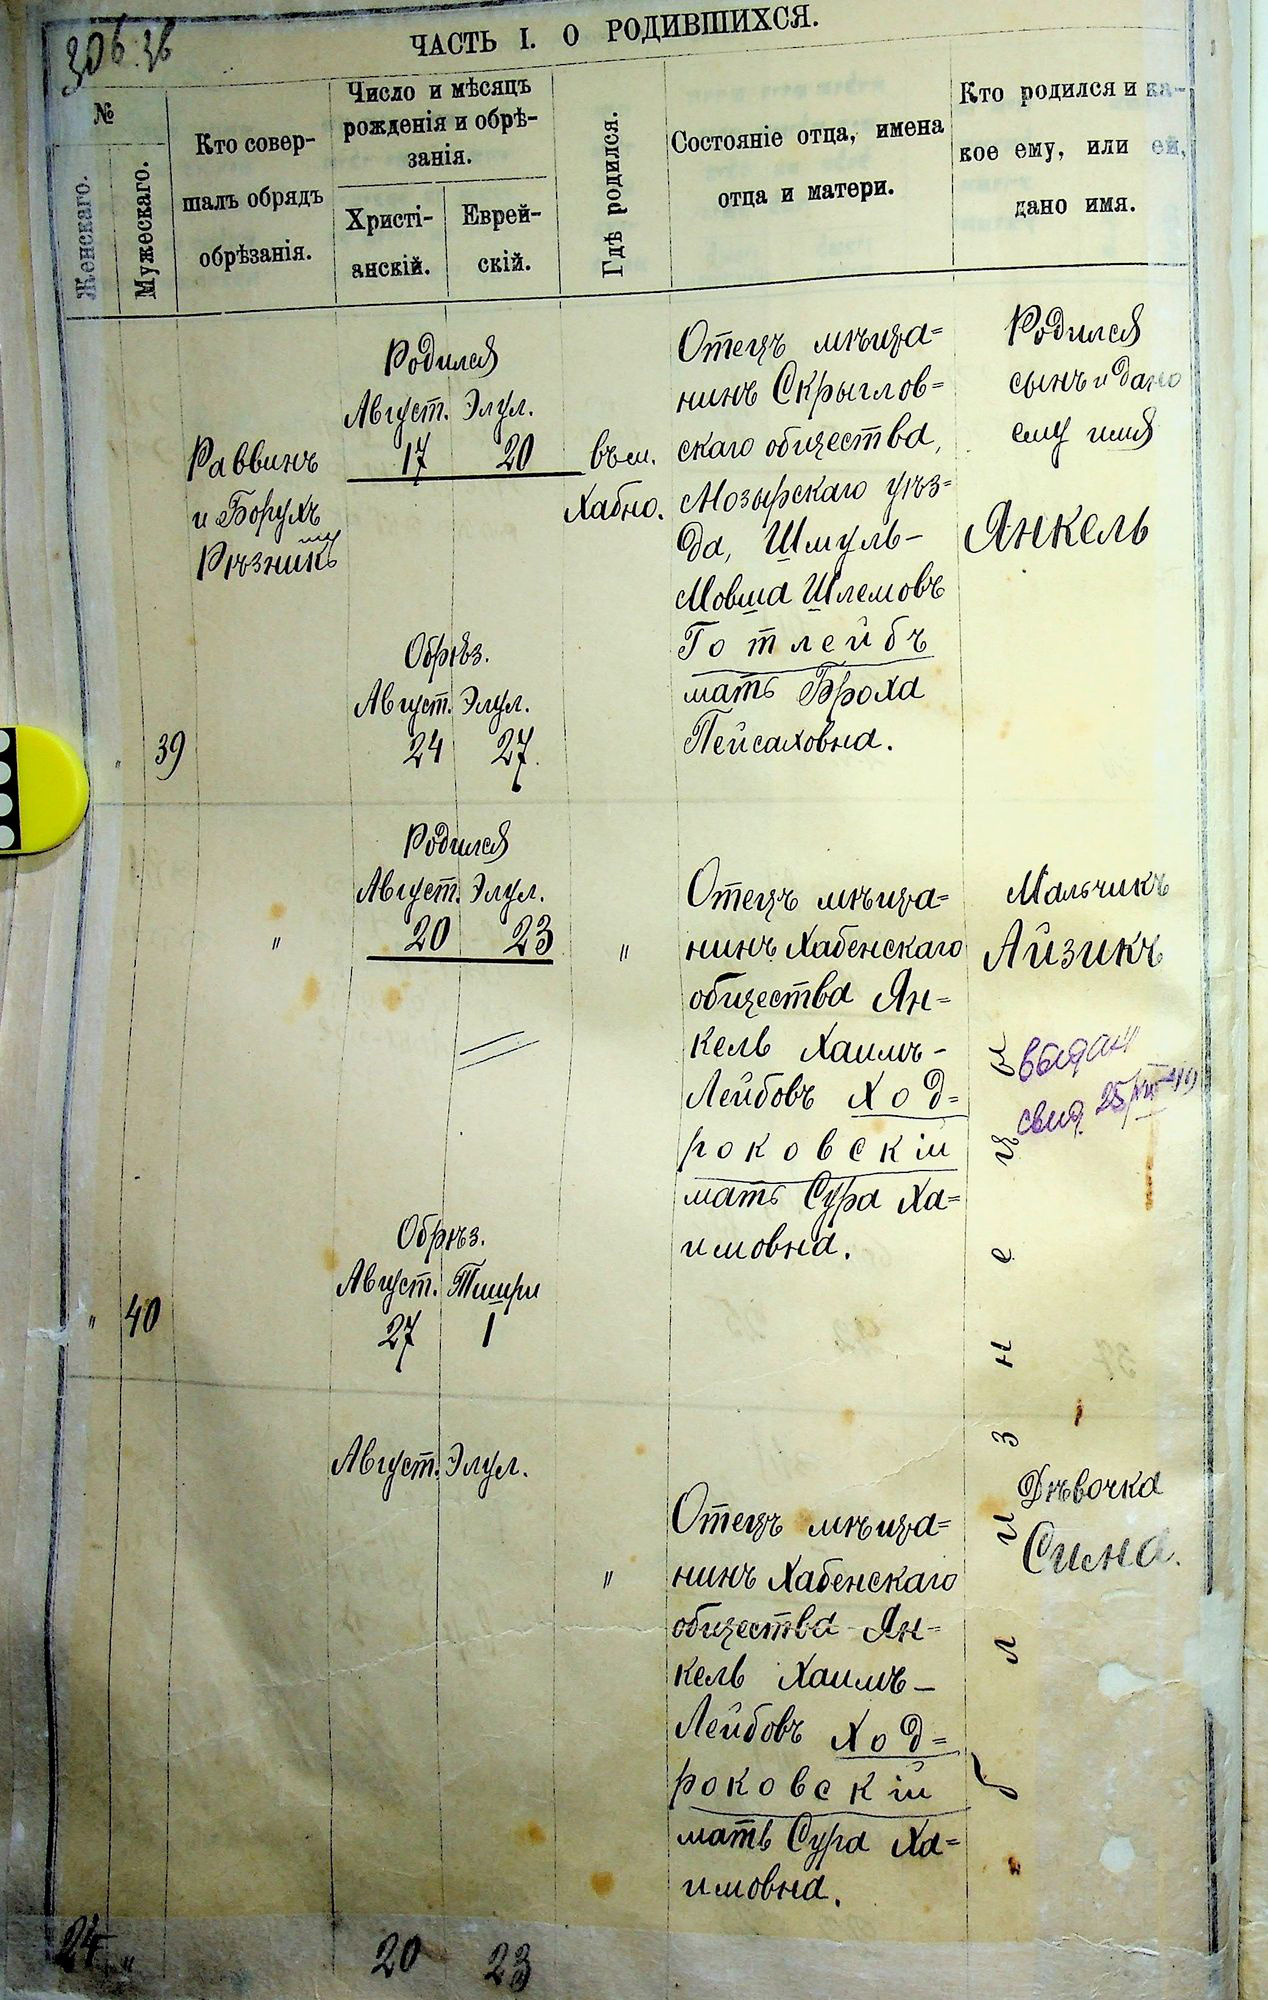 306 зв
ЧАСТЬ I. О РОДИВШИХСЯ.
№
Женскаго.
Мужескаго.
Кто совер-
шалъ обрядъ
обрѣзанія.
Число и мѣсяцъ
рожденія и обрѣ-
занія.
Христі-
анскій.
Еврей-
скій.
Гдѣ родился.
Состояніе отца, имена
отца и матери.
Кто родился и ка-
кое ему, или ей,
дано имя.
" 39
Раввинъ
и Борухъ
Рѣзникъ
Родился
Август. Элул.
17 20
Обрѣз.
Август. Элул.
24 27.
въ м.
Хабно.
Отецъ мѣща=
нинъ Скрыглов=
скаго общества,
Мозырскаго уѣз=
да, Шмуль-
Мовша Шлемовъ
Готлейбъ
мать Броха
Пейсаховна.
Родился
сынъ и дано
ему имя
Янкель
" 40
"
Родился
Август. Элул.
20 23
Обрѣз.
Август. Тишри
27 1
"
Отецъ мѣща=
нинъ Хабенскаго
общества Ян=
кель Хаимъ-
Лейбовъ Ход=
роковскій
мать Сура Ха=
имовна.
Мальчикъ
Айзикъ
выдан
свид. 25/VII
близнецы
24 "
Август. Элул.
20 23
"
Отецъ мѣща=
нинъ Хабенскаго
общества Ян=
кель Хаимъ-
Лейбовъ Ход=
роковскій
мать Сура Ха=
имовна.
Дѣвочка
Сима.